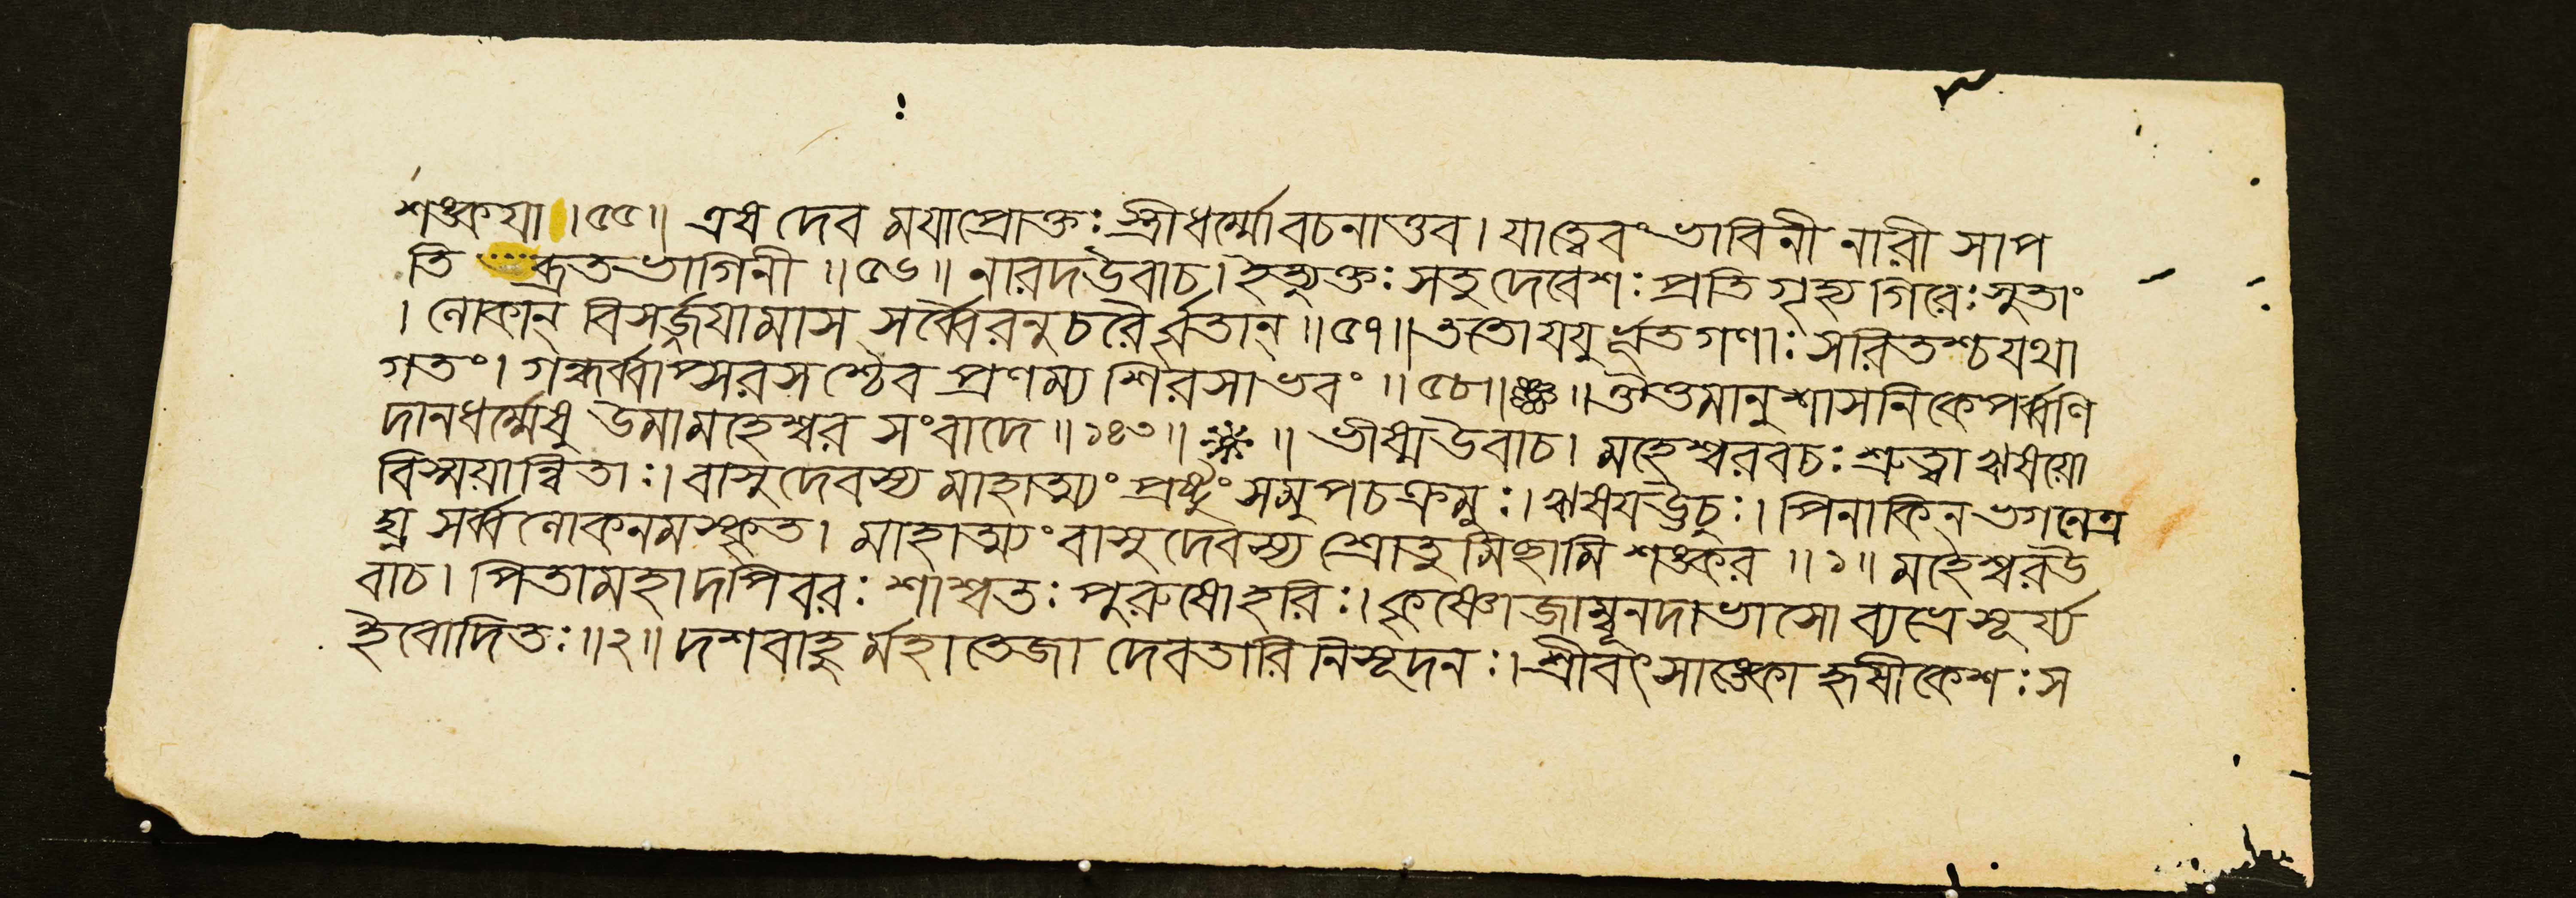 শঙ্কয়া ।৫৫॥ এষ দেব ময়াপ্রোক্তঃ স্ত্রীধর্ম্মোবচনাত্তব। যাত্বেবংভাবিনী নারী সাপ
তি ব্রতভাগিনী ॥৫৬॥ নারদউবাচ। ইত্যুক্তঃ সতু দেবেশঃ প্রতি গৃহ্য গিরেঃ সুতাং
। লোকান্ বিসর্জ্জয়ামাস সর্ব্বৈরনুচরৈর্বৃতান্ ॥৫৭॥ ততোযযুর্ভূতগণাঃ সরিতশ্চযথা
গতং। গন্ধর্ব্বাপ্সরসশ্চৈব প্রণম্য শিরসাভবং ॥৫৮॥ ॥ ঔত্তমানুশাসনিকেপর্ব্বণি
দানধর্ম্মেষু উমামহেশ্বর সংবাদে ॥১৪৩॥ ॥ ভীষ্মউবাচ। মহেশ্বরবচঃ শ্রুত্বা ঋষয়ো
বিস্ময়ান্বিতাঃ। বাসুদেবস্য মাহাত্ম্যং প্রষ্টুং সমুপচক্রমুঃ। ঋষয়ঊচুঃ। পিনাকিন্ ভগনেত্র
ঘ্ন সর্ব্বলোকনমস্কৃত। মাহাত্ম্যং বাসুদেবস্য শ্রোতুমিছামি শঙ্কর ॥১॥ মহেশ্বরউ
বাচ। পিতামহাদপিবরঃ শাশ্বতঃ পুরুষোহরিঃ। কৃষ্ণোজাম্বূনদাভাসো ব্যভ্রেসূর্য্য
ইবোদিতঃ ॥২॥ দশবাহুর্মহাতেজা দেবতারিনিসূদনঃ। শ্রীবৎসাঙ্কো হৃষীকেশঃ স